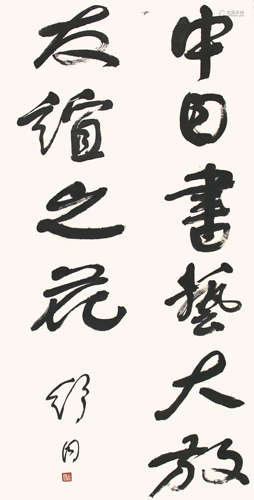 中日書藝大放
友誼之花
舒同